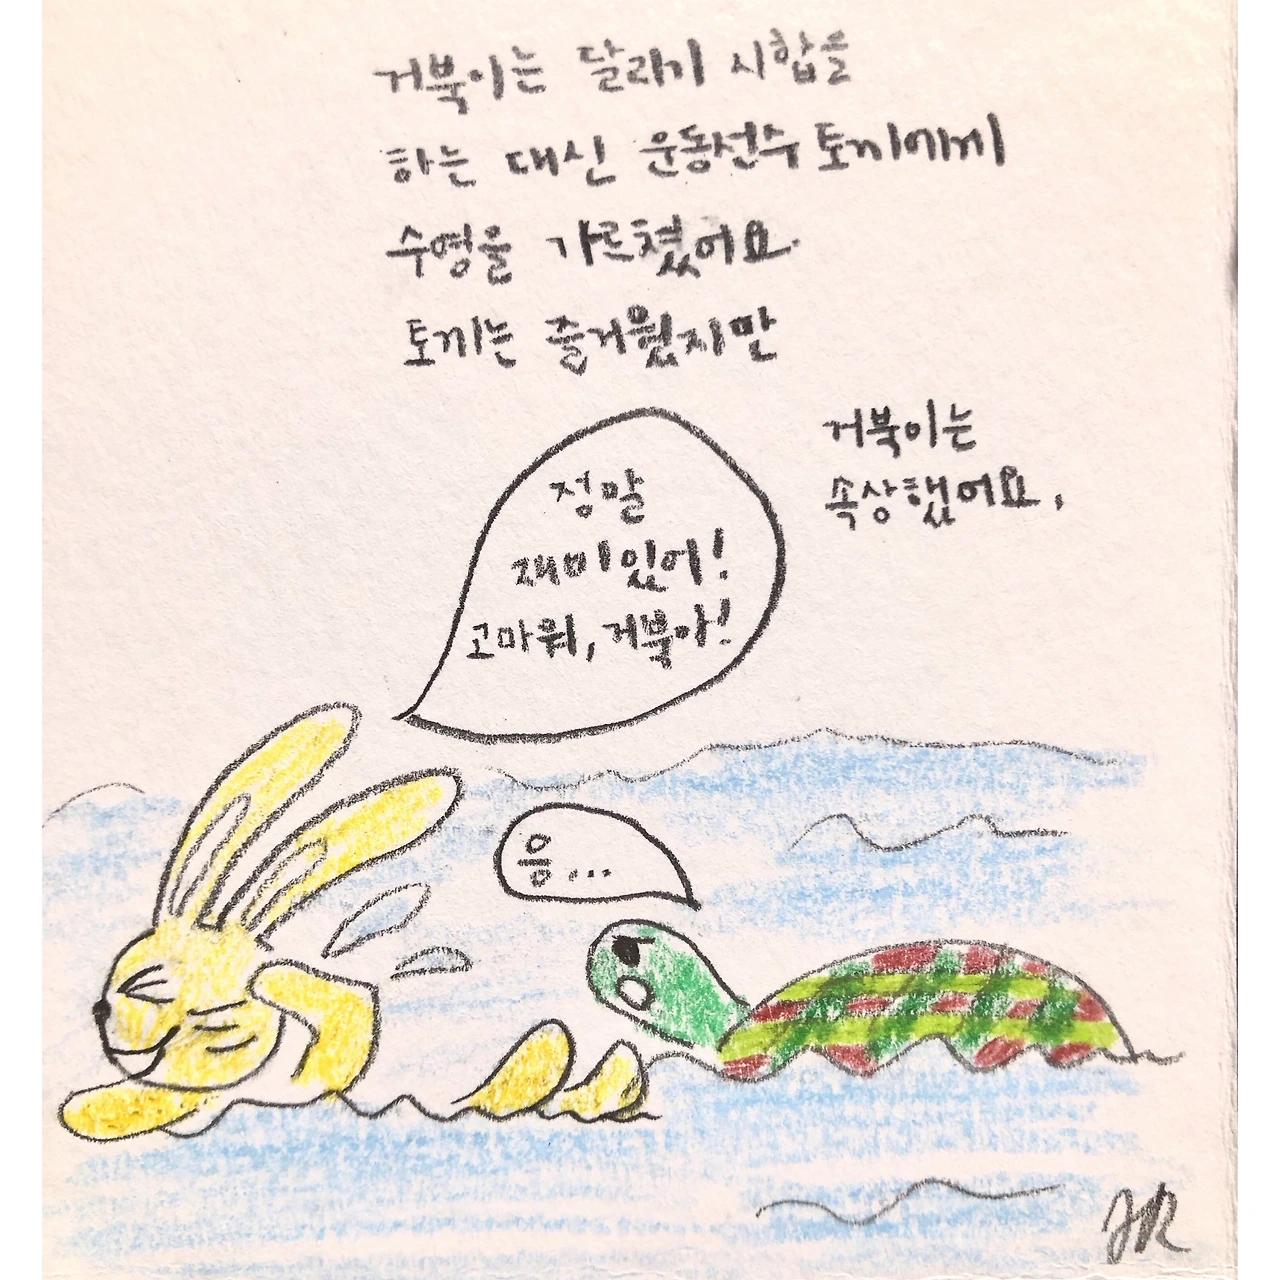 거북이는 달리기 시합을
하는 대신 운동선수 토끼에게
수영을 가르쳤어요.
토끼는 즐거웠지만
거북이는
속상했어요.
정말
재미있어!
고마워, 거북아!
음...
JR